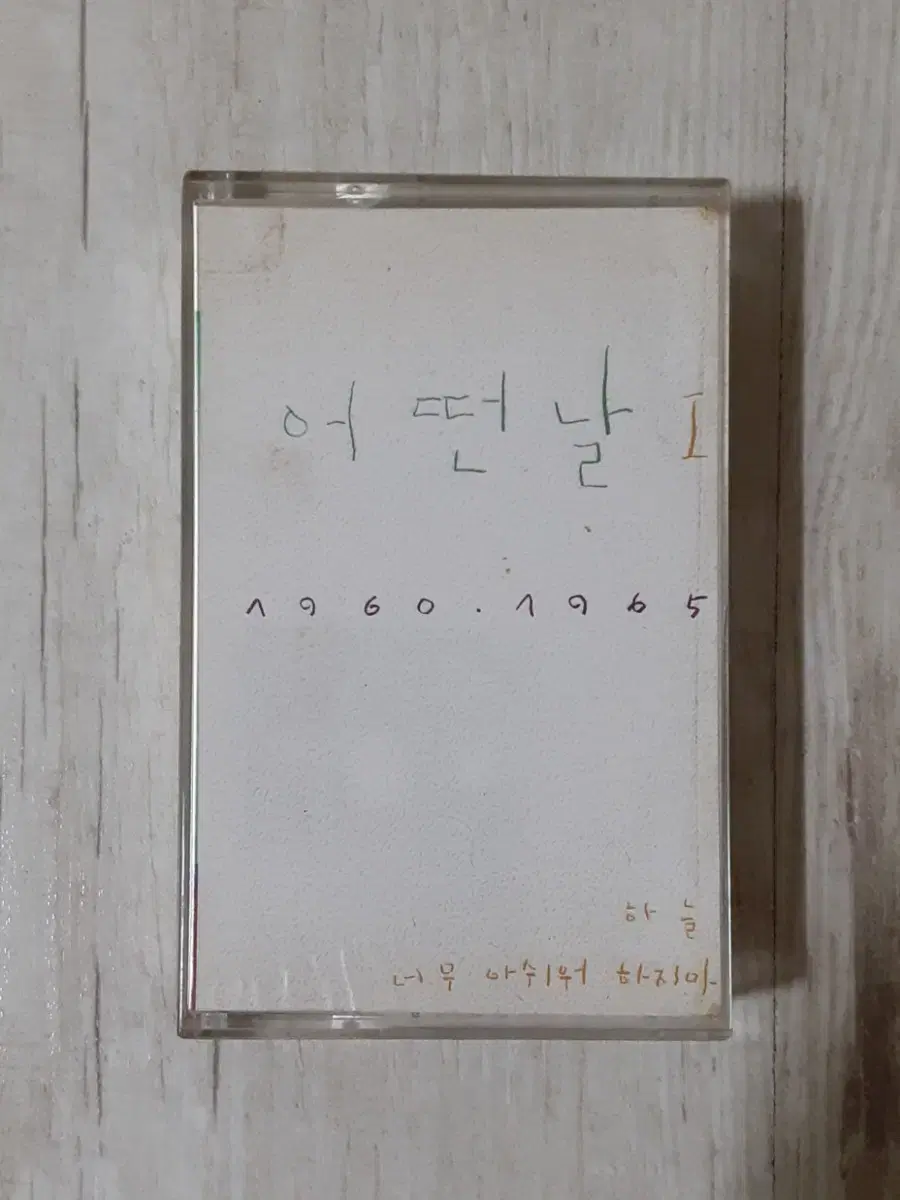 어떤날 I
1960.1965
하늘
너무 아쉬워 하지마